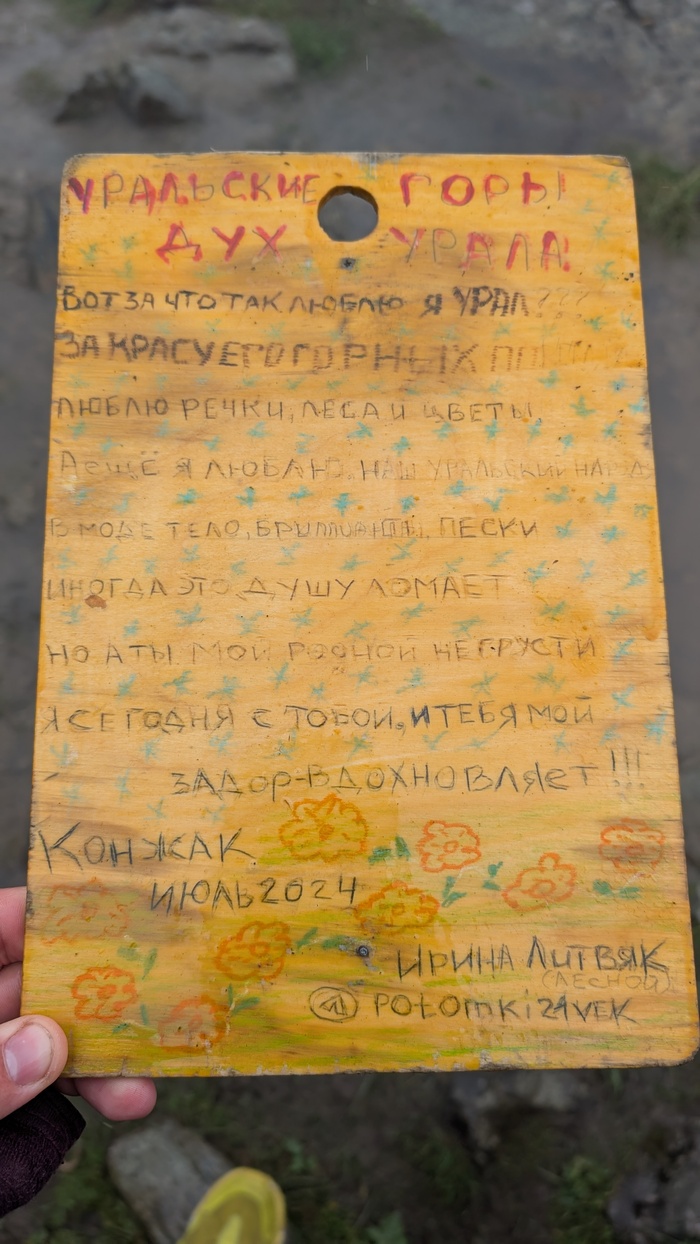 УРАЛЬСКИЕ ГОРЫ
ДУХ УРАЛА
ВОТ ЗА ЧТО ТАК ЛЮБЛЮ Я УРАЛ???
ЗА КРАСУ ЕГО ГОРНЫХ
ЛЮБЛЮ РЕЧКИ, ЛЕСА И ЦВЕТЫ,
А ещЁ Я ЛЮБЛЮ, НАШ УРАЛЬСКИЙ НАРОД
В МОДЕ ТЕЛО, БРИЛЛИАНТЫ, ПЕСКИ
ИНОГДА ЭТО ДУШУ ЛОМАЕТ
НО А ТЫ МОЙ РОДНОЙ НЕ ГРУСТИ
Я СЕГОДНЯ С ТОБОЙ, И ТЕБЯ МОЙ
ЗАДОР-ВДОХНОВЛЯЕТ!!!
КОНЖАК
ИЮЛЬ 2024
ИРИНА ЛИТВЯК
(ЛЕСНОЙ)
POtOMKi21VEK